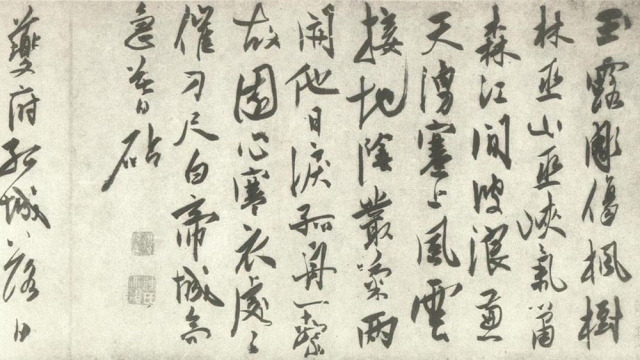 玉露彫傷楓樹
林巫山巫峽氣蕭
森江間波浪兼
天湧塞上風雲
接地陰叢菊兩
開他日淚孤舟一繫
故園心寒衣處〻
催刀尺白帝城高
急暮砧
夔府孤城落日